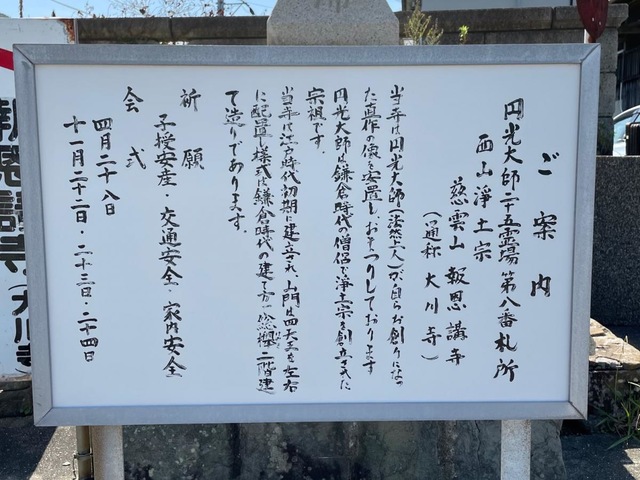 ご案内
円光大師二十五霊場第八番札所
西山浄土宗
慈雲山 報恩講寺
(通称 大川寺)
当寺は円光大師(法然上人)が自らお創りになっ
た真作の像を安置し、おまつりしております
円光大師は鎌倉時代の僧侶で浄土宗を創立された
宗祖です。
当寺は江戸時代初期に建立され、山門は四天王を左右
に配置し様式は鎌倉時代の建て方で総欅二階建
て造りであります。
祈願
子授安産・交通安全・家内安全
会式
四月二十八日
十一月二十二日・二十三日・二十四日
報恩講寺(大川寺)